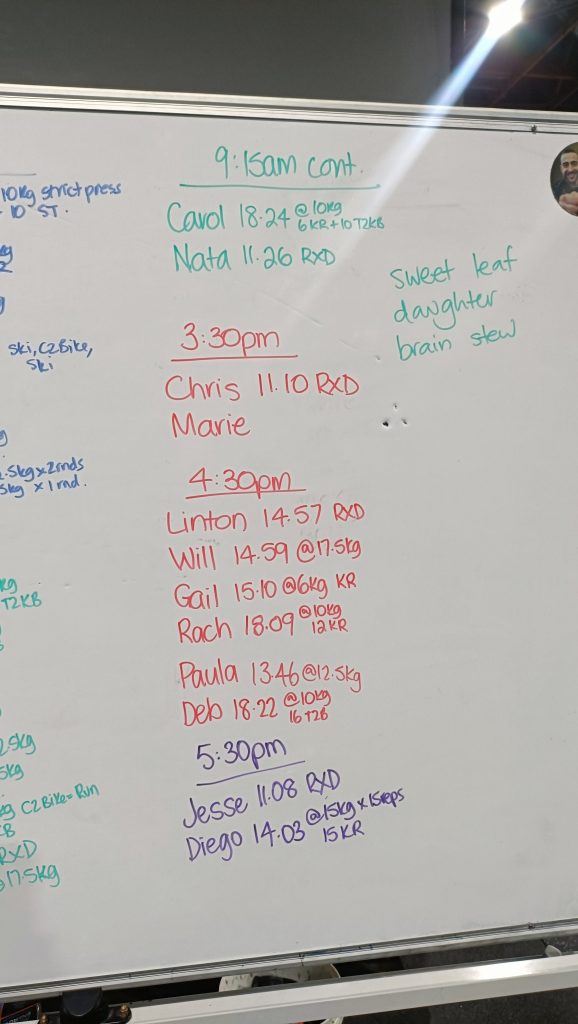 10kg strict press
10 ST.
ski, C2Bike,
ski
.5kg x 2rnds
5kg x 1rnd.
kg
T2KB
2.5kg
5kg
kg C2Bike = Run
KB
RXD
@17.5kg
9:15am cont.
Carol 18.24 @10kg
6KR+10T2KB
Nata 11.26 RXD
3:30pm
Chris 11.10 RXD
Marie
4:30pm
Linton 14.57 RXD
Will 14.59 @17.5kg
Gail 15.10 @6kg KR
Rach 18.09 @10kg
12KR
Paula 13.46 @12.5kg
Deb 18.22 @10kg
16 T2B
5:30pm
Jesse 11.08 RXD
Diego 14.03 @15kg x 15reps
15KR
sweet leaf
daughter
brain stew